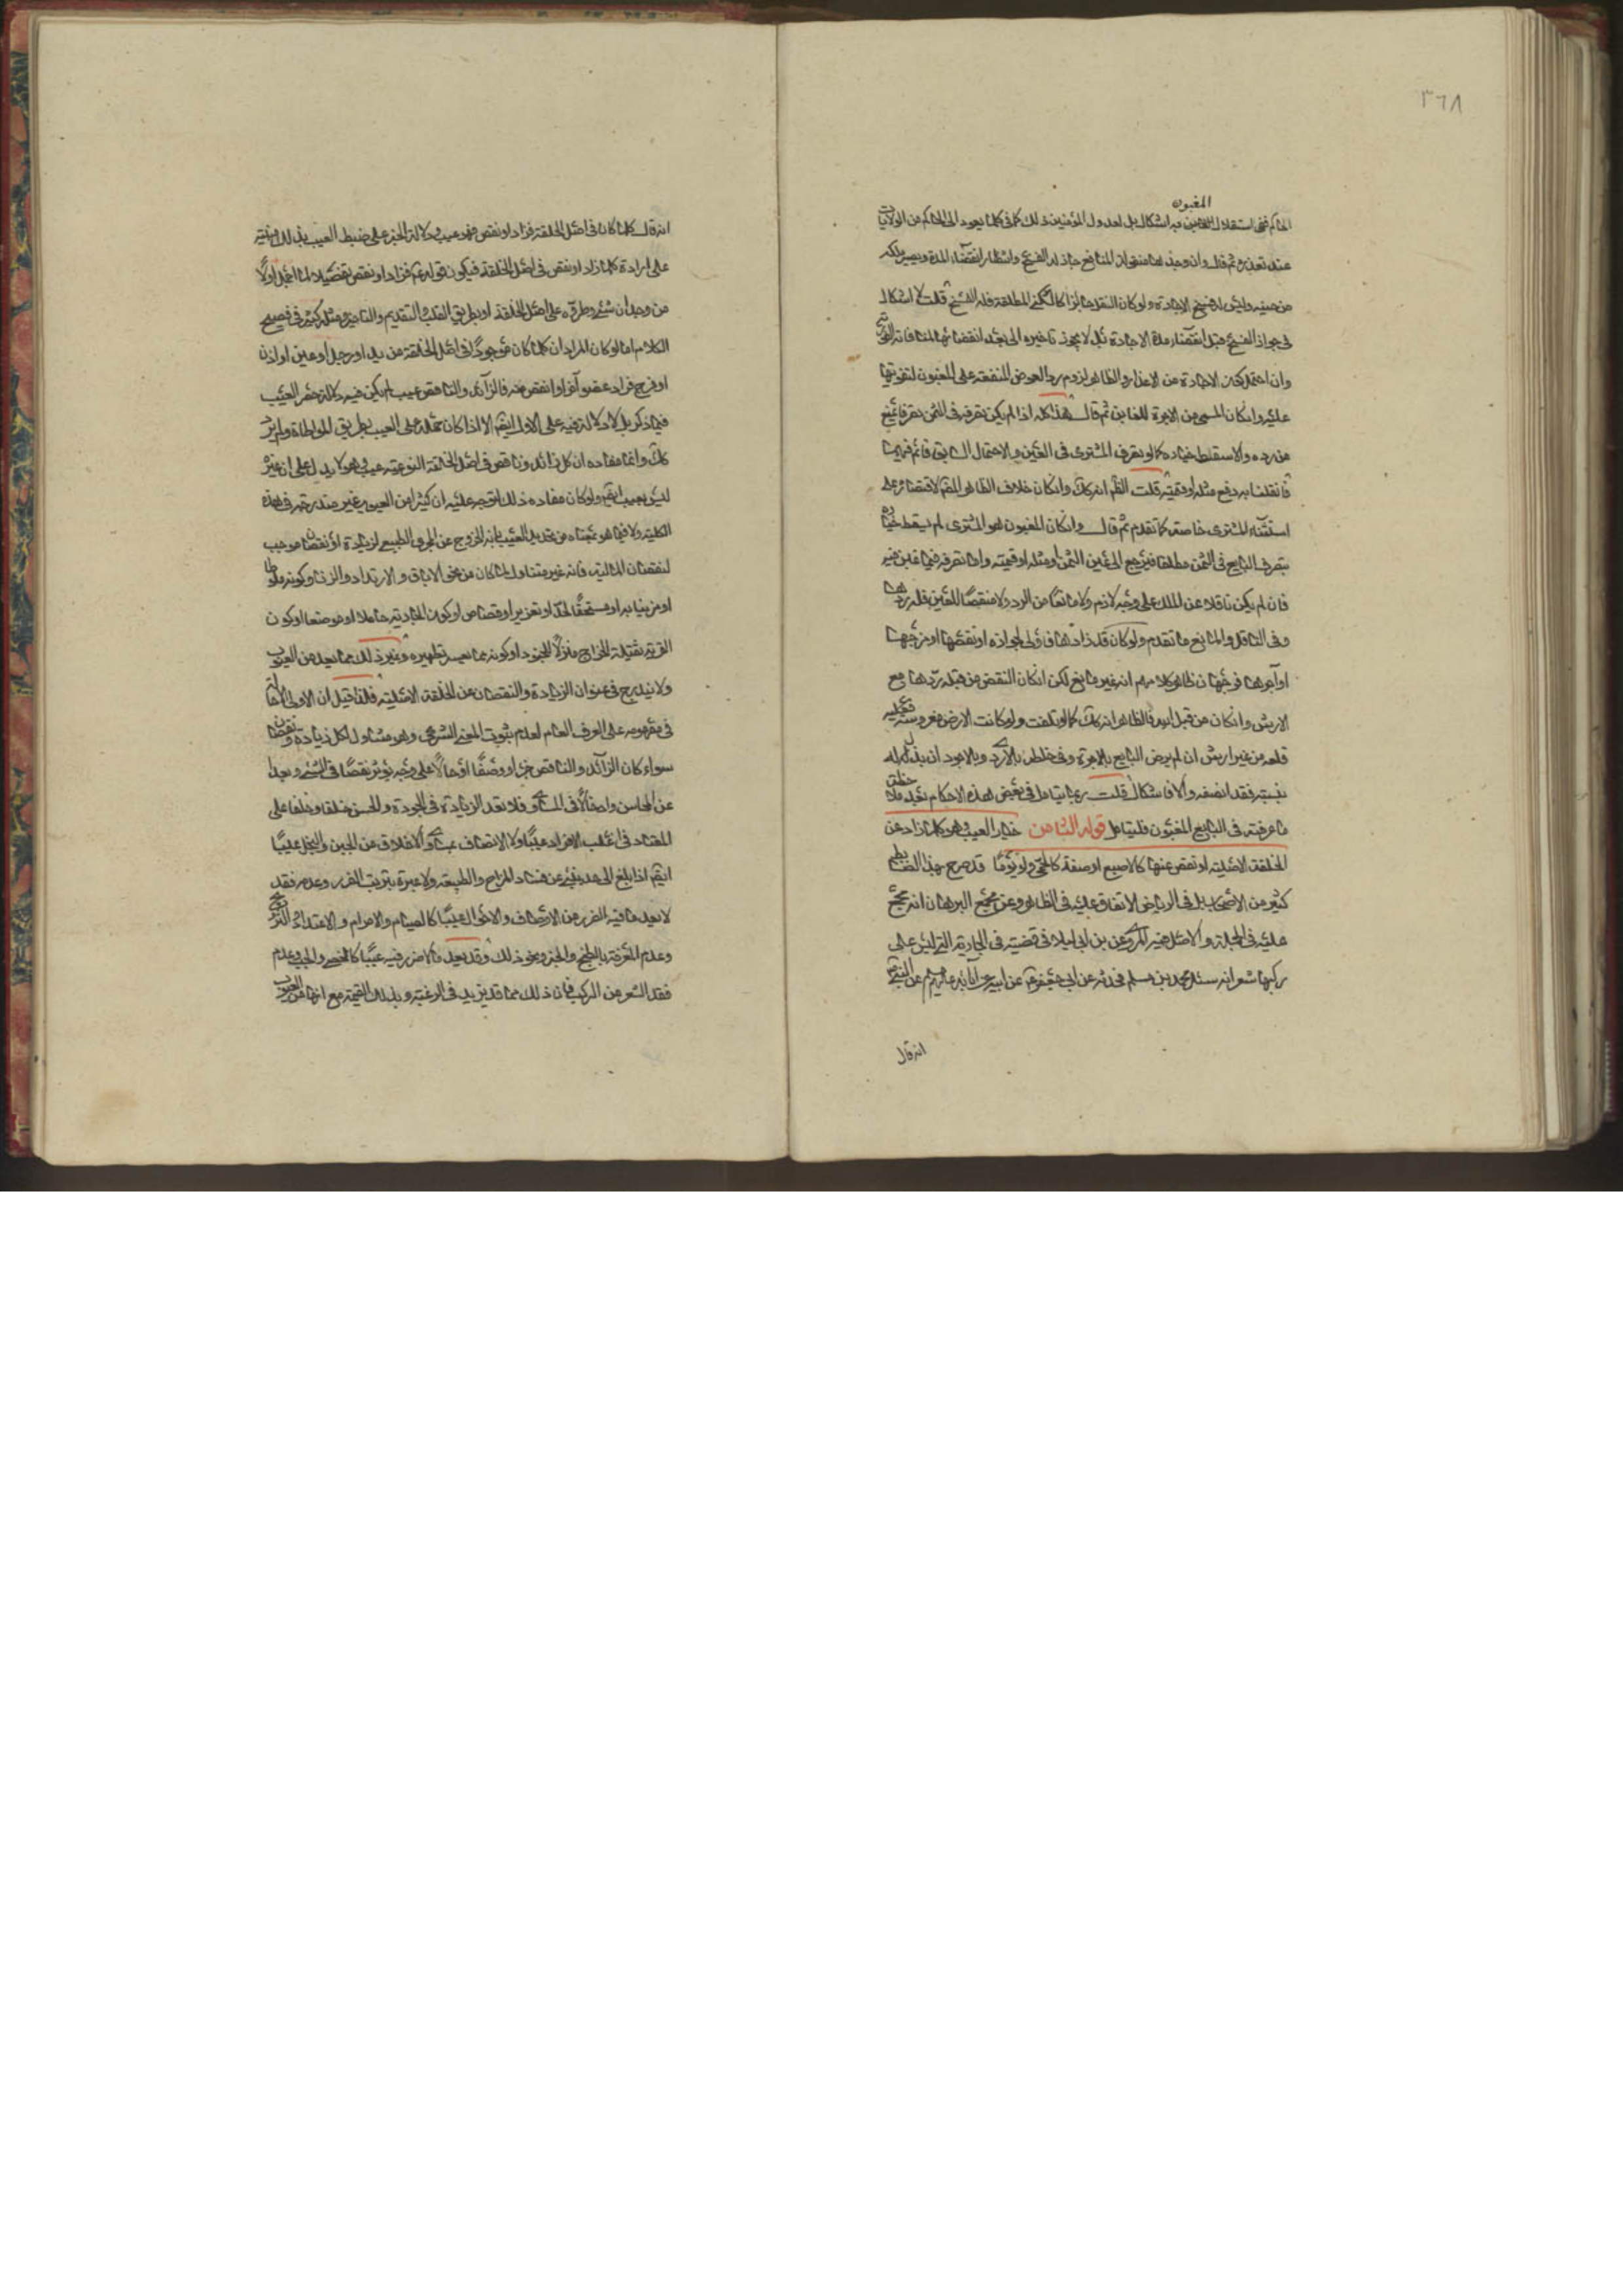 ٣٦٨
المغبون
الحاكم ففى استقلال به اشكال بل لعدول المؤمنين ذلك كما فى كلما يعود الى الحاكم من الولايات
عند تعذره ثم قال وان وجدها منقولة المنافع جاز له الفسخ وانتظار انقضاء المدة وتصير ملكه
من حينه وليس له فسخ الاجارة ولو كان النقل جائزا كالسكنى المطلقة فله الفسخ قلت لا اشكال
فى جواز الفسخ قبل انقضاء مدة الاجارة بل لا يجوز تاخيره الى بعد انقضائها لمنافاته الفور
وان احتمل كون الاجارة من الاعذار والظاهر لزوم رد العوض للمنفعة على المغبون لتفويتها
عليه وان كان المسمى من الاجرة للغابن ثم قال هذا كله اذا لم يكن تصرفه فى الثمن تصرفا يمنع
من رده والا سقط خياره كما لو تصرف المشترى فى العين والاحتمال السابق قائم فيهما
فان قلنا به دفع مثله او قيمته قلت الظ انه كك وان كان خلاف الظاهر
استثناء المشترى خاصة كما تقدم ثم قال وان كان المغبون هو المشترى لم يسقط خياره
بتصرف البايع فى الثمن مطلقا فيرجع الى عين الثمن او مثله او قيمته واما تصرفه فيما غبن فيه
فان لم يكن ناقلا عن الملك على وجه لازم ولا مانعا من الرد ولا منقصا للعين فله ردها
وفى الناقل والمانع ما تقدم ولو كان قد زادها فاولى بجوازه او نقصها او مزجها
او آجرها فوجهان ظاهر كلامهم انه غير مانع لكن ان كان النقص من قبله ردها مع
الارش وان كان من قبل الله فالظاهر انه كك كما لو تلفت ولو كانت الارض مغروسة فعليه
قلعه من غير ارش ان لم يرض البايع بالاجرة وفى خلطه بالاردى وبالاجود ان بذل له
بنسبته فقد انصفه والا فاشكال قلت ربما يتامل فى بعض هذه الاحكام بعد ملاحظة
ما عرفته فى البايع المغبون فليتامل قوله الثامن خيار العيب وهو كلما زاد عن
الخلقة الاصلية او نقص عنها كالاصبع او صفة كالحمى ولو يوما قد صرح بهذا الضابط
كثير من الاصحاب بل فى الرياض الاتفاق عليه فى الظاهر وعن مجمع البرهان انه مجمع
عليه فى الجملة والاصل فيه المروى عن بن ابى ليلا فى قضيته فى الجارية التى ليس على
ركبها شعر انه سئل محمد بن مسلم فحدثه عن ابى جعفر عن ابيه عن آبائه عن النبى ص
انه قال
انه قال كلما كان فى اصل الخلقة فزاد او نقص فهو عيب ودلالة الخبر على ضبط العيب بذلك مبنية
على ارادة كلما زاد او نقص فى اصل الخلقة فيكون قوله فزاد او نقص تفصيلا لما اجمل اولا
من وجدان شئ وطروه على اصل الخلقة او بطريق القلب التقديم والتاخير ومثله كثير فى فصيح
الكلام اما لو كان المراد ان كلما كان موجودا فى اصل الخلقة من يد او رجل او عين او اذن
او فرج فزاد عضو آخر او انقص منه فالزائد والناقص عيب لم يكن فيه دلالة حصر العيب
فيما ذكر بل لا دلالة فيه على الاول ايضا الا اذا كان حمله على العيب بطريق المواطاة ولم يثبت
كك وانما مفاده ان كل زائد وناقص فى اصل الخلقة النوعية عيب وهو لا يدل على ان غيره
ليس بعيب ايضا ولو كان مفاده ذلك لتوجه عليه ان كثيرا من العيوب غير مندرجة فى هذه
الكلية ولا فيما هو بمعناه من تحديد العيب بانه الخروج عن المجرى الطبيعى لزيادة او نقصان موجب
لنقصان المالية فانه غير متناول لما كان من نحو الاباق والارتداد والزنا وكونه
او مزنيا به او مستحقا لحد او تعزير او قصاص او كون الجارية حاملا او مرضعا او كون
القرية ثقيلة الخراج منزلا للجنود او كونه مما يعسر تطهيره وغير ذلك مما يعد من العيوب
ولا يندرج فى عنوان الزيادة والنقصان عن الخلقة الاصلية فلذا قيل ان الاولى
فى مفهومه على العرف العام لعدم ثبوت المعنى الشرعى وهو متناول لكل زيادة ونقصان
سواء كان الزائد والناقص جزءا او وصفا او حالا على وجه يؤثر نقصا فى الشئ وبعدا
عن المحاسن فلا تعد الزيادة فى الجودة والحسن خلقا وخلقا على
المعتاد فى اغلب الافراد عيبا ولا الاتصاف الاخلاق من الجبن والبخل عيبا
ايضا اذا بلغ الى حد ينبئ عن فساد المزاج والطبيعة ولا عبرة بترتب الضرر وعدمه فقد
لا يعد ما فيه الضرر من الاوصاف والاحوال عيبا كالصيام والاحرام والاعتداد
وعدم المعرفة بالطبخ والخبز ونحو ذلك وقد يعد ما لا ضرر فيه عيبا كالخصى والجب وعدم
فقد الشعر من الركب فان ذلك مما قد يزيد فى الرغبة وبذلك القيمة مع انها من العيوب